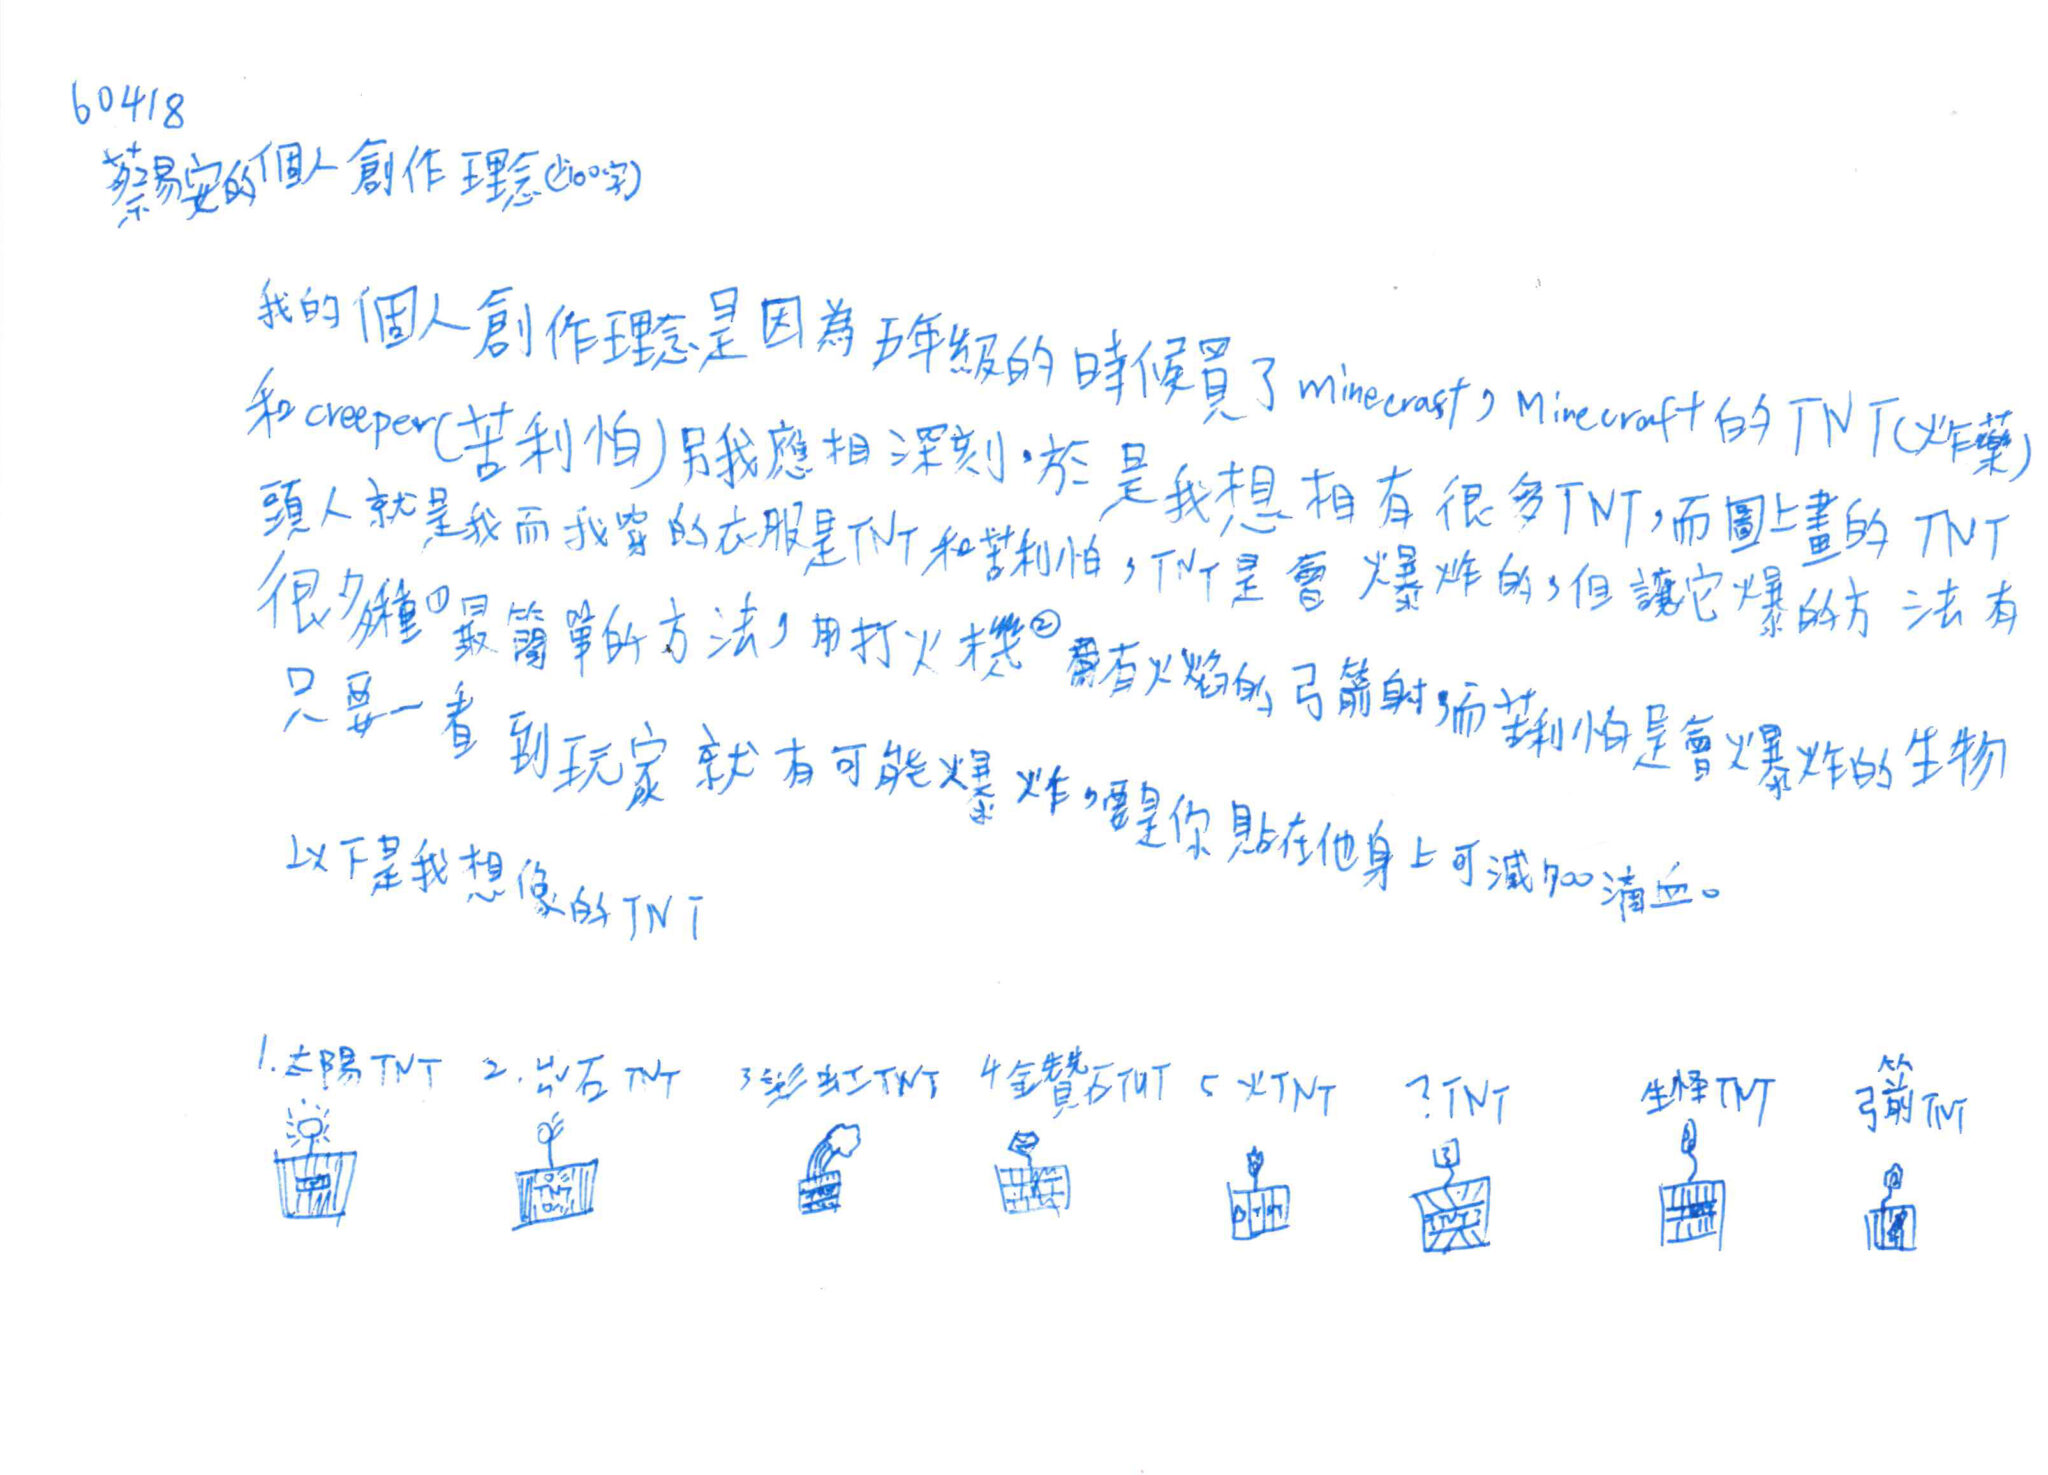 60418
蔡易安的個人創作理念(100字)
我的個人創作理念是因為五年級的時候買了minecrast,Minecraft的TNT(炸藥)
和creeper(苦利怕)另我應相深刻,於是我想相有很多TNT,而圖上畫的TNT
頭人就是我而我穿的衣服是TNT和苦利怕,TNT是會爆炸的,但讓它爆的方法有
很多種①最簡單的方法,用打火機②有火焰的弓箭射,而苦利怕是會爆炸的生物
只要一看到玩家就有可能爆炸,要是你貼在他身上可減700滴血。
以下是我想像的TNT
1.太陽TNT 2.岩石TNT 3彩虹TNT 4金贊石TNT 5火TNT ?TNT 生怪TNT 弓箭TNT